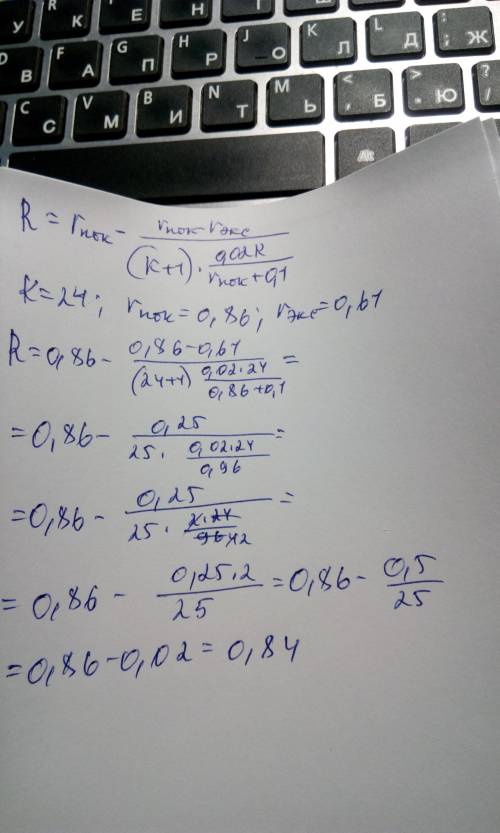 R K E H Г Ш
У
D F G H J K L : ;
В А П Р О Л Д Ж
C V B N M < , > . ? /
С М И Т Ь Б Ю
Alt
R = rпок - (rпок - rэкс) / ((K+1) · 0,02K / (rпок + 0,1))
K = 24; rпок = 0,86; rэкс = 0,61
R = 0,86 - (0,86 - 0,61) / ((24+1) 0,02·24 / (0,86+0,1)) =
= 0,86 - 0,25 / (25 · 0,02·24 / 0,96) =
= 0,86 - 0,25 / (25 · 2·24 / 96·2) =
= 0,86 - 0,25·2 / 25 = 0,86 - 0,5 / 25
= 0,86 - 0,02 = 0,84